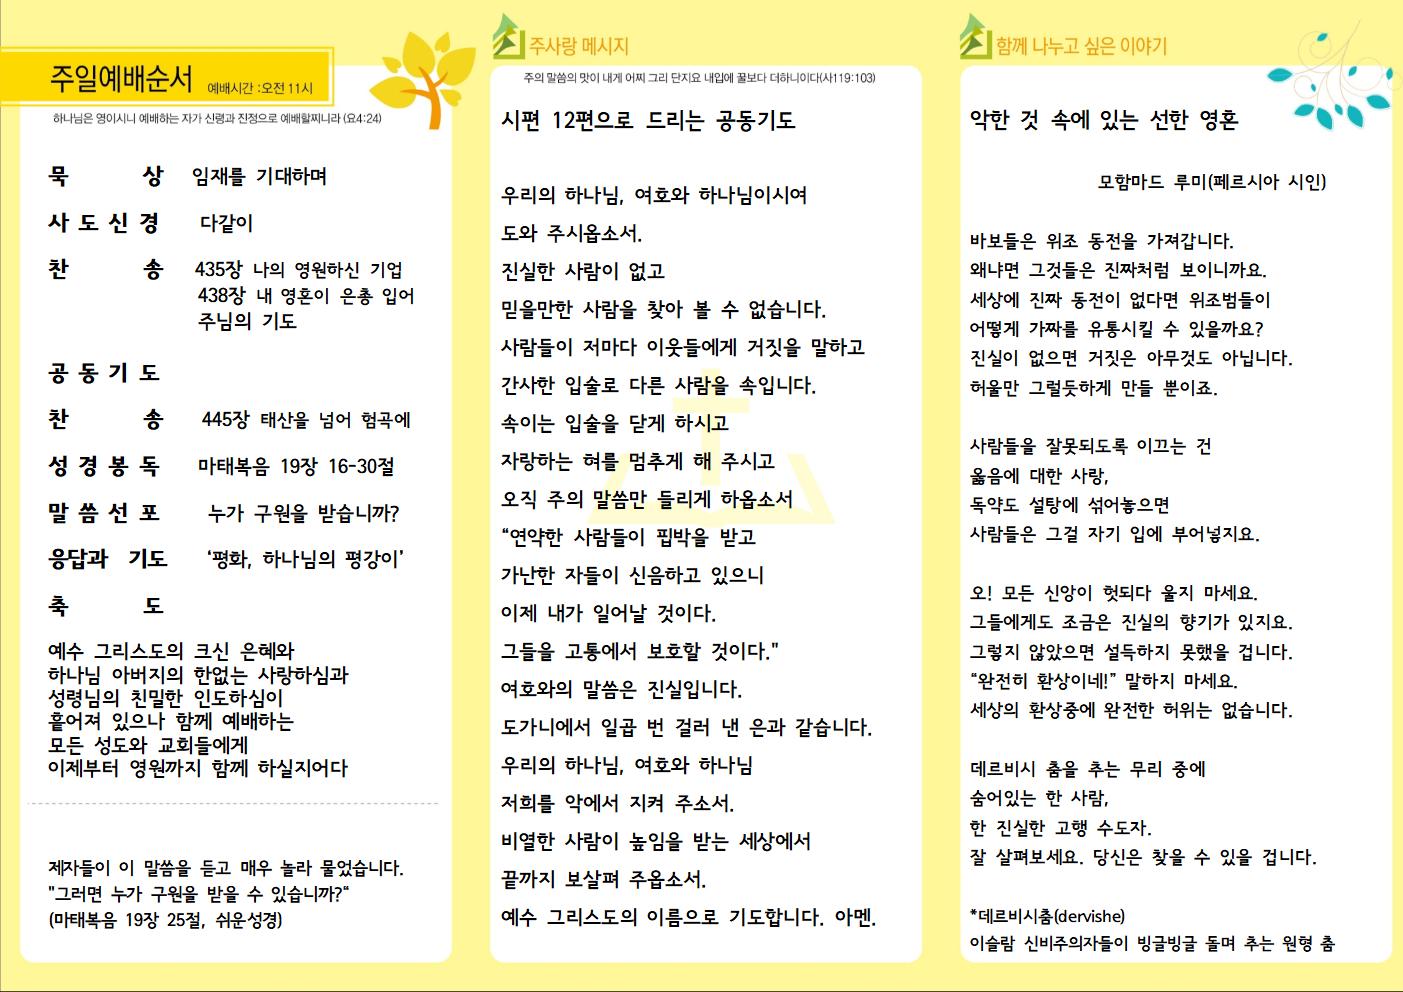 주일예배순서 예배시간 :오전 11시
하나님은 영이시니 예배하는 자가 신령과 진정으로 예배할찌니라 (요4:24)
묵 상 임재를 기대하며
사 도 신 경 다같이
찬 송 435장 나의 영원하신 기업
438장 내 영혼이 은총 입어
주님의 기도
공 동 기 도
찬 송 445장 태산을 넘어 험곡에
성 경 봉 독 마태복음 19장 16-30절
말 씀 선 포 누가 구원을 받습니까?
응답과 기도 ‘평화, 하나님의 평강이’
축 도
예수 그리스도의 크신 은혜와
하나님 아버지의 한없는 사랑하심과
성령님의 친밀한 인도하심이
흩어져 있으나 함께 예배하는
모든 성도와 교회들에게
이제부터 영원까지 함께 하실지어다
제자들이 이 말씀을 듣고 매우 놀라 물었습니다.
"그러면 누가 구원을 받을 수 있습니까?“
(마태복음 19장 25절, 쉬운성경)
주사랑 메시지
주의 말씀의 맛이 내게 어찌 그리 단지요 내입에 꿀보다 더하니이다(사119:103)
시편 12편으로 드리는 공동기도
우리의 하나님, 여호와 하나님이시여
도와 주시옵소서.
진실한 사람이 없고
믿을만한 사람을 찾아 볼 수 없습니다.
사람들이 저마다 이웃들에게 거짓을 말하고
간사한 입술로 다른 사람을 속입니다.
속이는 입술을 닫게 하시고
자랑하는 혀를 멈추게 해 주시고
오직 주의 말씀만 들리게 하옵소서
“연약한 사람들이 핍박을 받고
가난한 자들이 신음하고 있으니
이제 내가 일어날 것이다.
그들을 고통에서 보호할 것이다."
여호와의 말씀은 진실입니다.
도가니에서 일곱 번 걸러 낸 은과 같습니다.
우리의 하나님, 여호와 하나님
저희를 악에서 지켜 주소서.
비열한 사람이 높임을 받는 세상에서
끝까지 보살펴 주옵소서.
예수 그리스도의 이름으로 기도합니다. 아멘.
함께 나누고 싶은 이야기
악한 것 속에 있는 선한 영혼
모함마드 루미(페르시아 시인)
바보들은 위조 동전을 가져갑니다.
왜냐면 그것들은 진짜처럼 보이니까요.
세상에 진짜 동전이 없다면 위조범들이
어떻게 가짜를 유통시킬 수 있을까요?
진실이 없으면 거짓은 아무것도 아닙니다.
허울만 그럴듯하게 만들 뿐이죠.
사람들을 잘못되도록 이끄는 건
옳음에 대한 사랑,
독약도 설탕에 섞어놓으면
사람들은 그걸 자기 입에 부어넣지요.
오! 모든 신앙이 헛되다 울지 마세요.
그들에게도 조금은 진실의 향기가 있지요.
그렇지 않았으면 설득하지 못했을 겁니다.
“완전히 환상이네!” 말하지 마세요.
세상의 환상중에 완전한 허위는 없습니다.
데르비시 춤을 추는 무리 중에
숨어있는 한 사람,
한 진실한 고행 수도자.
잘 살펴보세요. 당신은 찾을 수 있을 겁니다.
*데르비시춤(dervishe)
이슬람 신비주의자들이 빙글빙글 돌며 추는 원형 춤